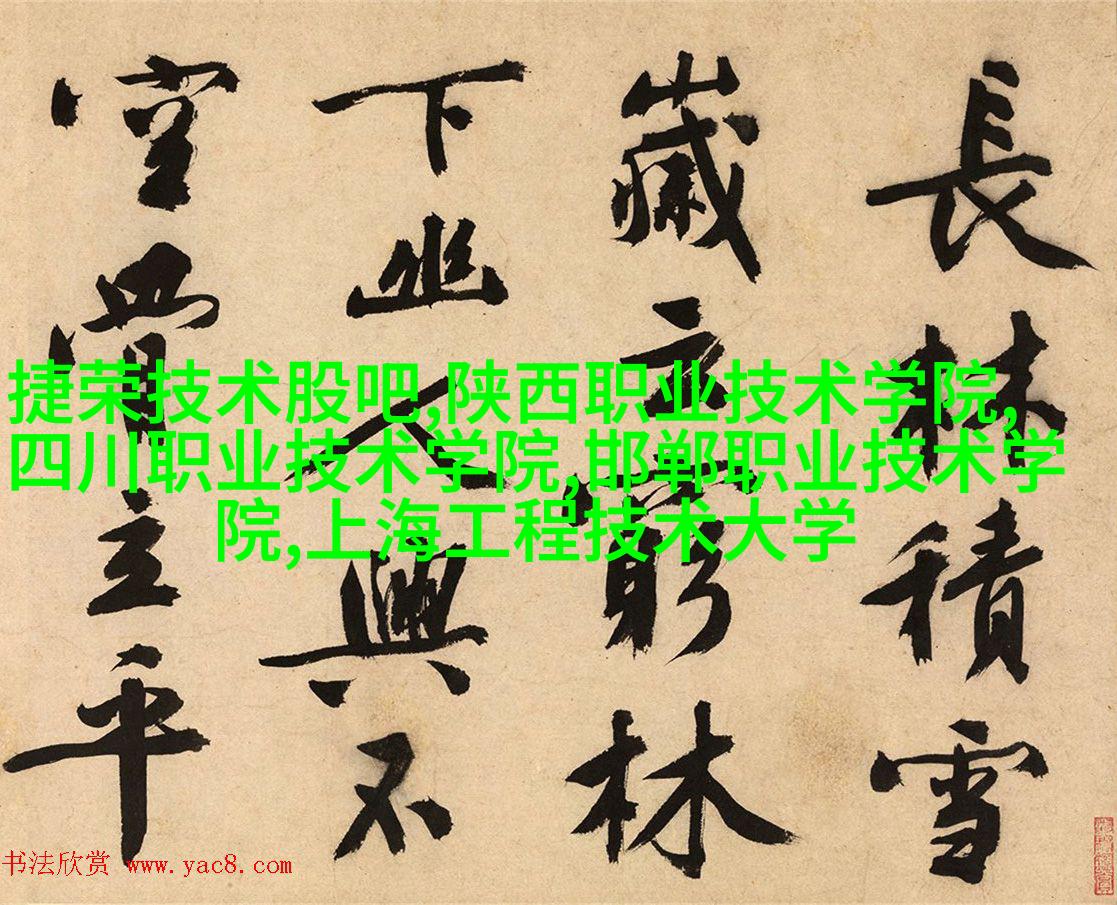 長林積雪
歲云窮林
下幽人興不
空立平
捷荣技术股吧,陕西职业技术学院,
四川职业技术学院,邯郸职业技术学
院,上海工程技术大学
书法欣赏 www.yac8.com